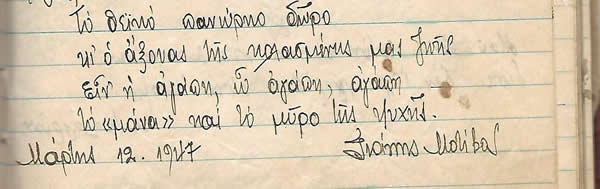 τὸ θεϊκὸ πανώριο δῶρο
κι' ὁ ἄξονας τῆς κολασμένης μας ζωῆς
εἶν' ἡ ἀγάπη, ὦ ἀγάπη, ἀγάπη
τὸ «μάνα» καὶ τὸ μῦρο τῆς ψυχῆς.
Μάρτης 12. 1947 Γιάννης